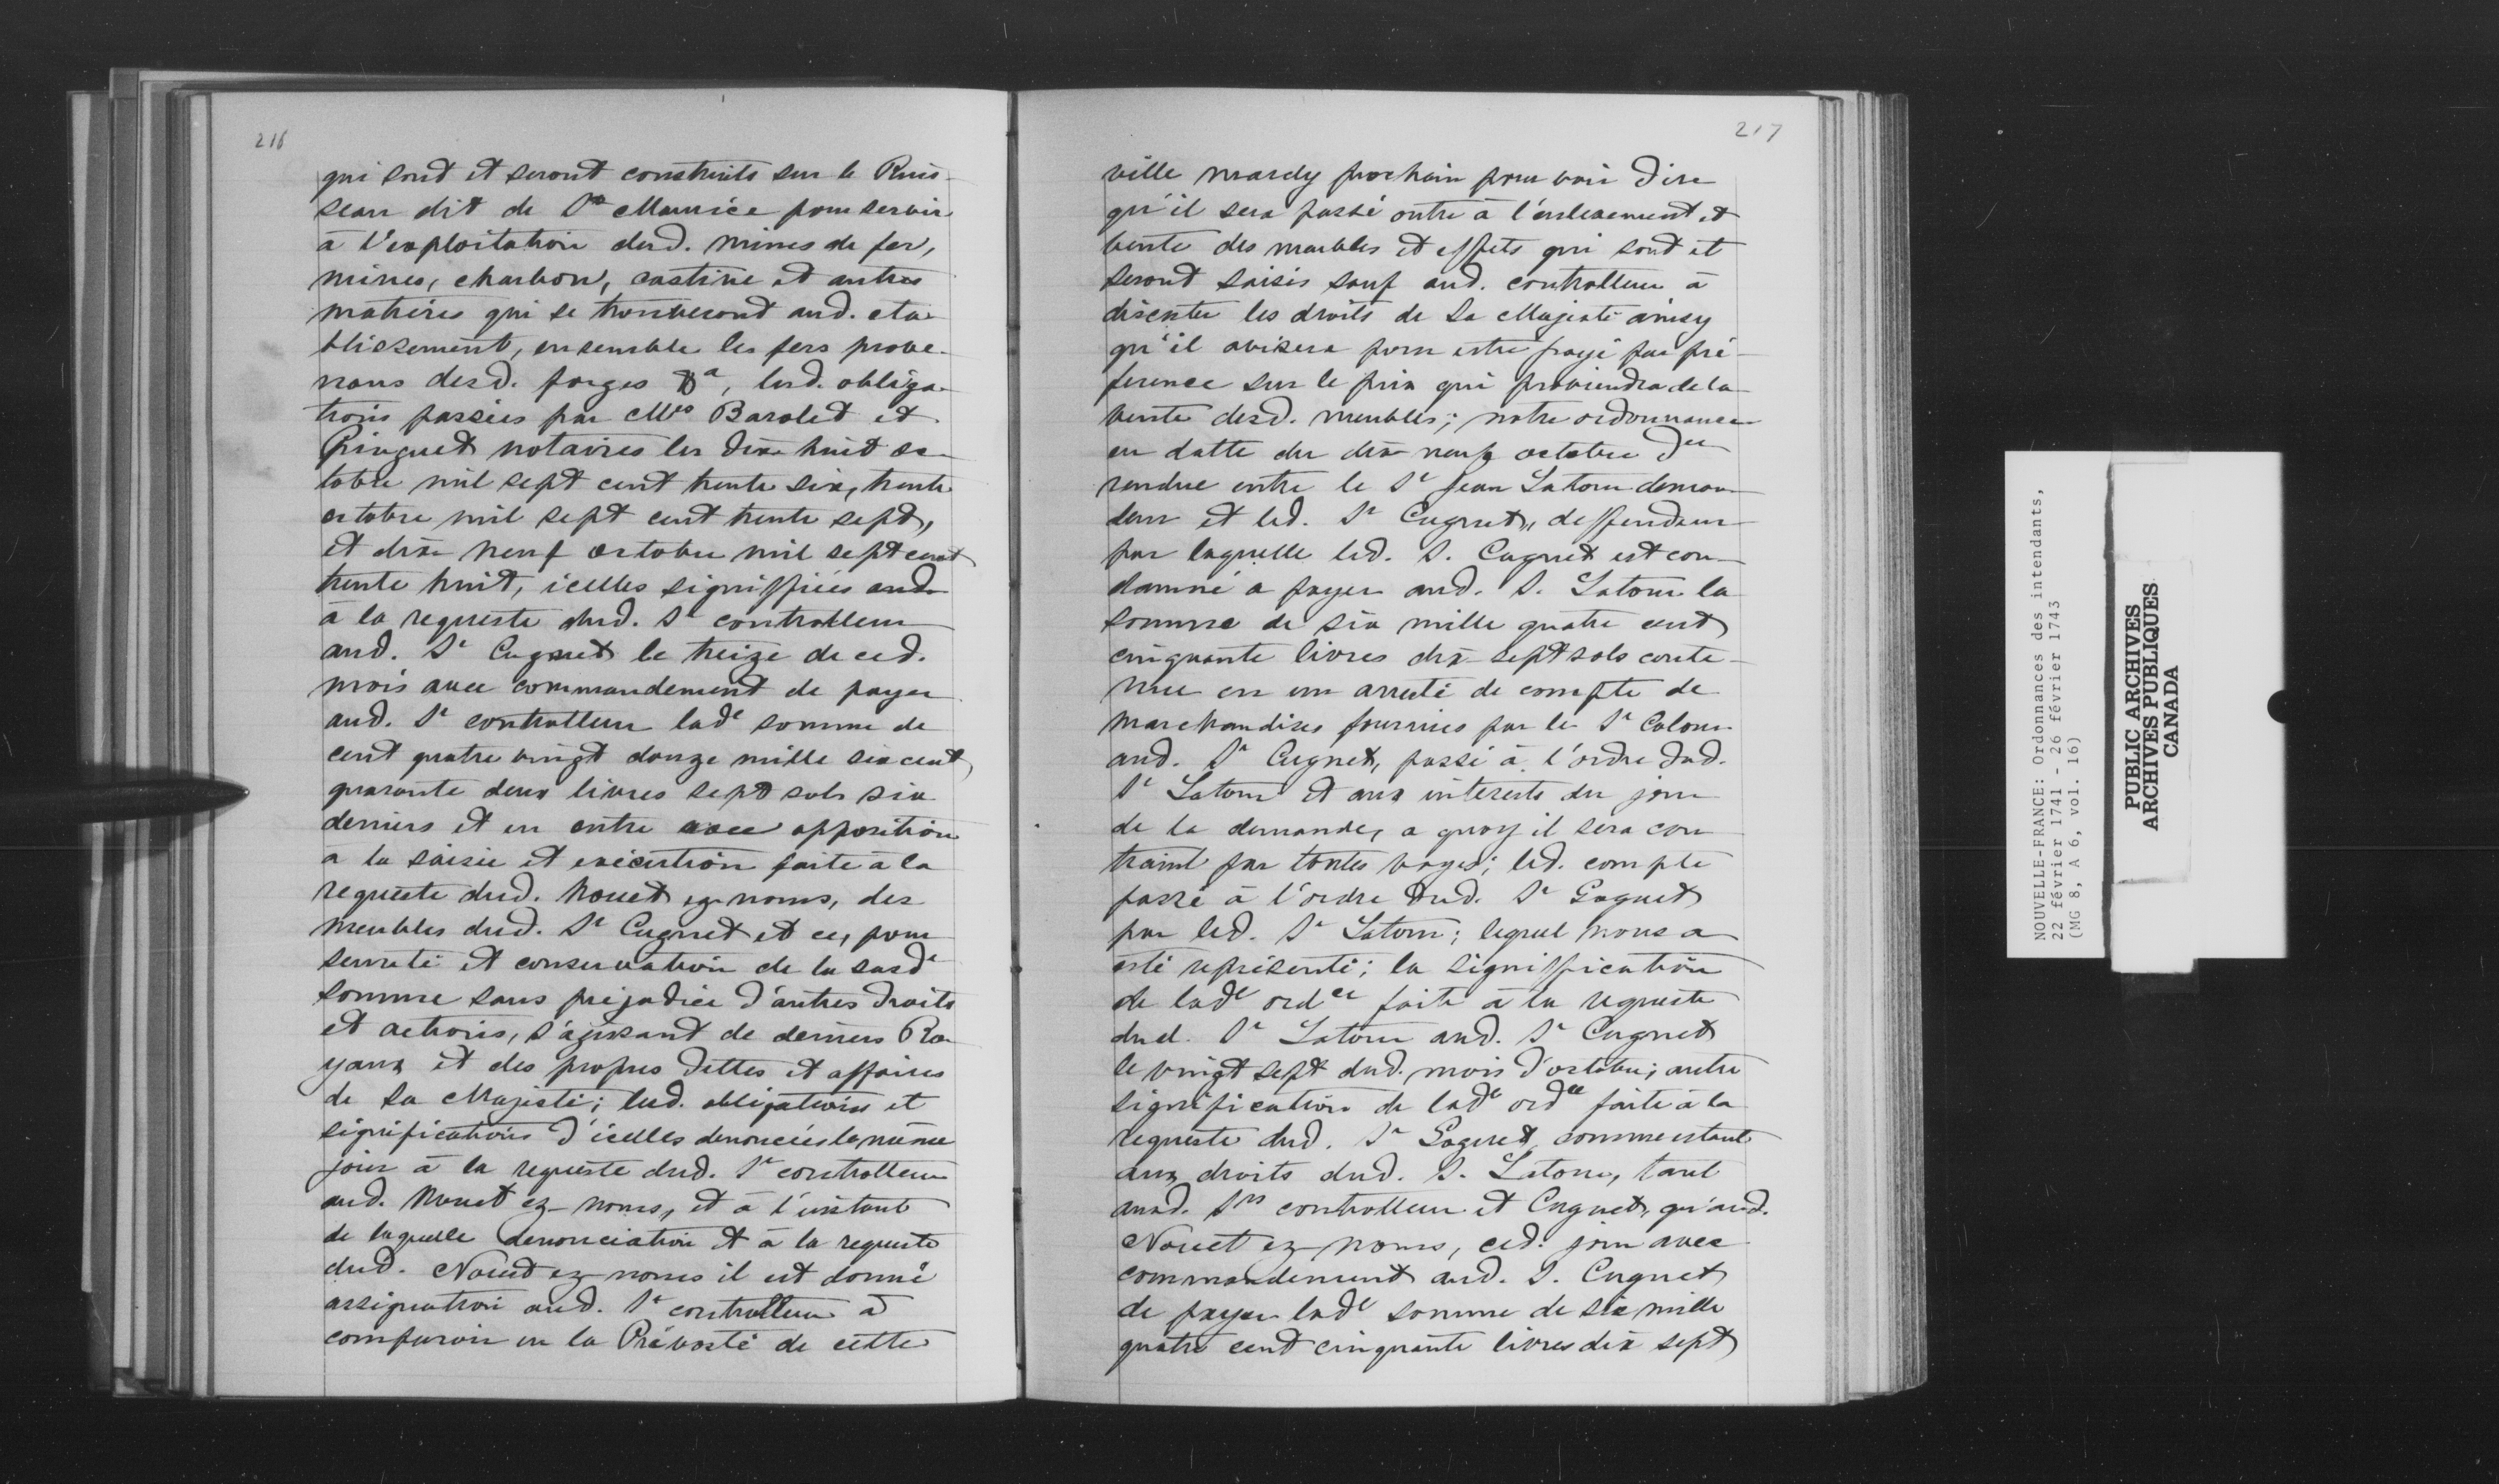 216
qui sont et seront construits sur le Ruis-
seau dit de St Maurice pour servir
à l'exploitation desd. mines de fer,
mines, charbon, castine et autres
matières qui se trouveront aud. eta-
blissement, ensemble les fers prove-
nans desd. forges &a, lesd. obliga-
tions passées par Mes Barolet et
Pinguet notaires les dix huit oc-
tobre mil sept cent trente six, trente
octobre mil sept cent trente sept,
et dix neuf octobre mil sept cent
trente huit, icelles signiffiées aud.
à la requeste dud. Sr controlleur
aud. Sr Cugnet le treize de ced.
mois avec commandement de payer
aud. Sr controlleur lade somme de
cent quatre vingt douze mille six cent
quarante deux livres sept sols six
deniers et en outre avec opposition
a la saisie et exécution faite à la
requeste dud. Nouet ez noms, des
meubles dud. Sr Cugnet et ce, pour
seureté et conservation de la susde
somme sans prejudice d'autres droits
et actions, s'agissant de deniers Ro-
yaux et des propres dettes et affaires
de Sa Majesté; lesd. obligations et
significations d'icelles denoncées le même
jour à la requeste dud. Sr controlleur
aud. Nouet ez noms, et à l'instant
de laquelle denonciation et à la requeste
dud. Nouet ez noms il est donné
assignation aud. Sr controlleur à
comparoir en la Prévosté de cette
217
ville mardy prochain pour voir dire
qu'il sera passé outre à l'enlevement et
vente des meubles et effets qui sont et
seront saisis sauf aud. controlleur à
discuter les droits de Sa Majesté ainsy
qu'il avisera pour estre payé par pré-
ference sur le prix qui proviendra de la
vente desd. meubles; notre ordonnance
en datte du dix neuf octobre der
rendue entre le Sr Jean Latour deman-
deur et led. Sr Cugnet, deffendeur
par laquelle led. S. Cugnet est con-
damné a payer aud. S. Latour la
somme de six mille quatre cent
cinquante livres dix-sept sols conte-
nue en un arresté de compte de
marchandises fournies par le Sr
aud. Sr Cugnet, passé à l'ordre dud.
Sr Latour et aux interests du jour
de la demande, a quoy il sera con-
traint par toutes voyes; led. compte
passé à l'ordre dud. Sr
par led. Sr Latour; lequel nous a
esté représenté; la signiffication
de lade ordce faite à la requeste
dud. Sr Latour aud. Sr Cugnet
le vingt sept dud. mois d'octobre; autre
signification de lade ordce faite à la
requeste dud. Sr comme estant
aux droits dud. S. Latour, tant
auxd. Srs controlleur et Cugnet, qu'aud.
Nouet ez noms, ced. jour avec
commandement aud. S. Cugnet
de payer lade somme de six mille
quatre cent cinquante livres dix sept
NOUVELLE-FRANCE: Ordonnances des intendants,
22 février 1741 - 26 février 1743
(MG 8, A 6, vol. 16)
PUBLIC ARCHIVES
ARCHIVES PUBLIQUES
CANADA